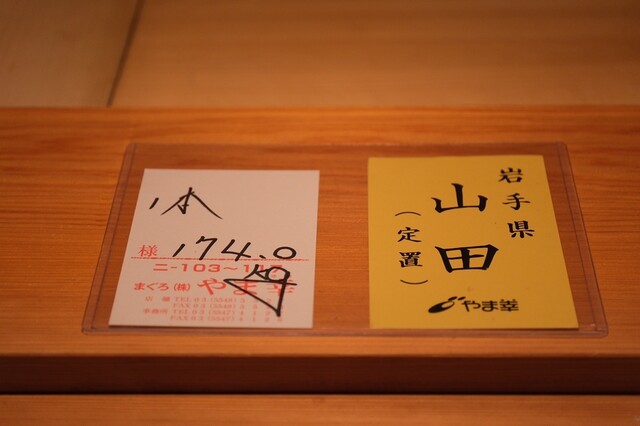 本
様 174.0
ニ-103～117
まぐろ(株)やま幸
岩手県
山田
(定置)
やま幸